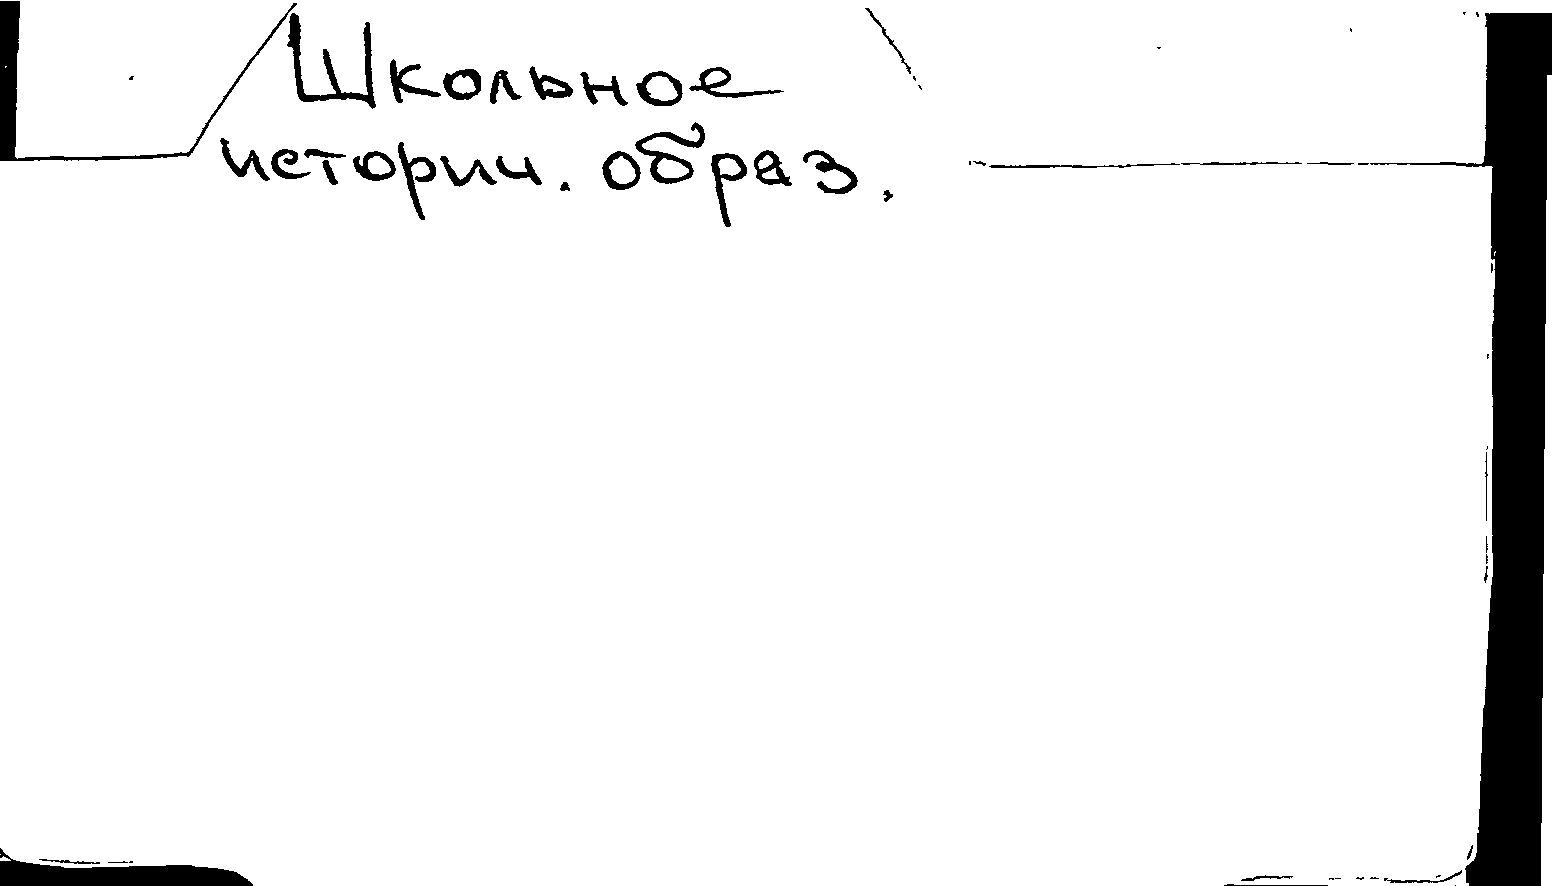 Школьное
историч. образ.